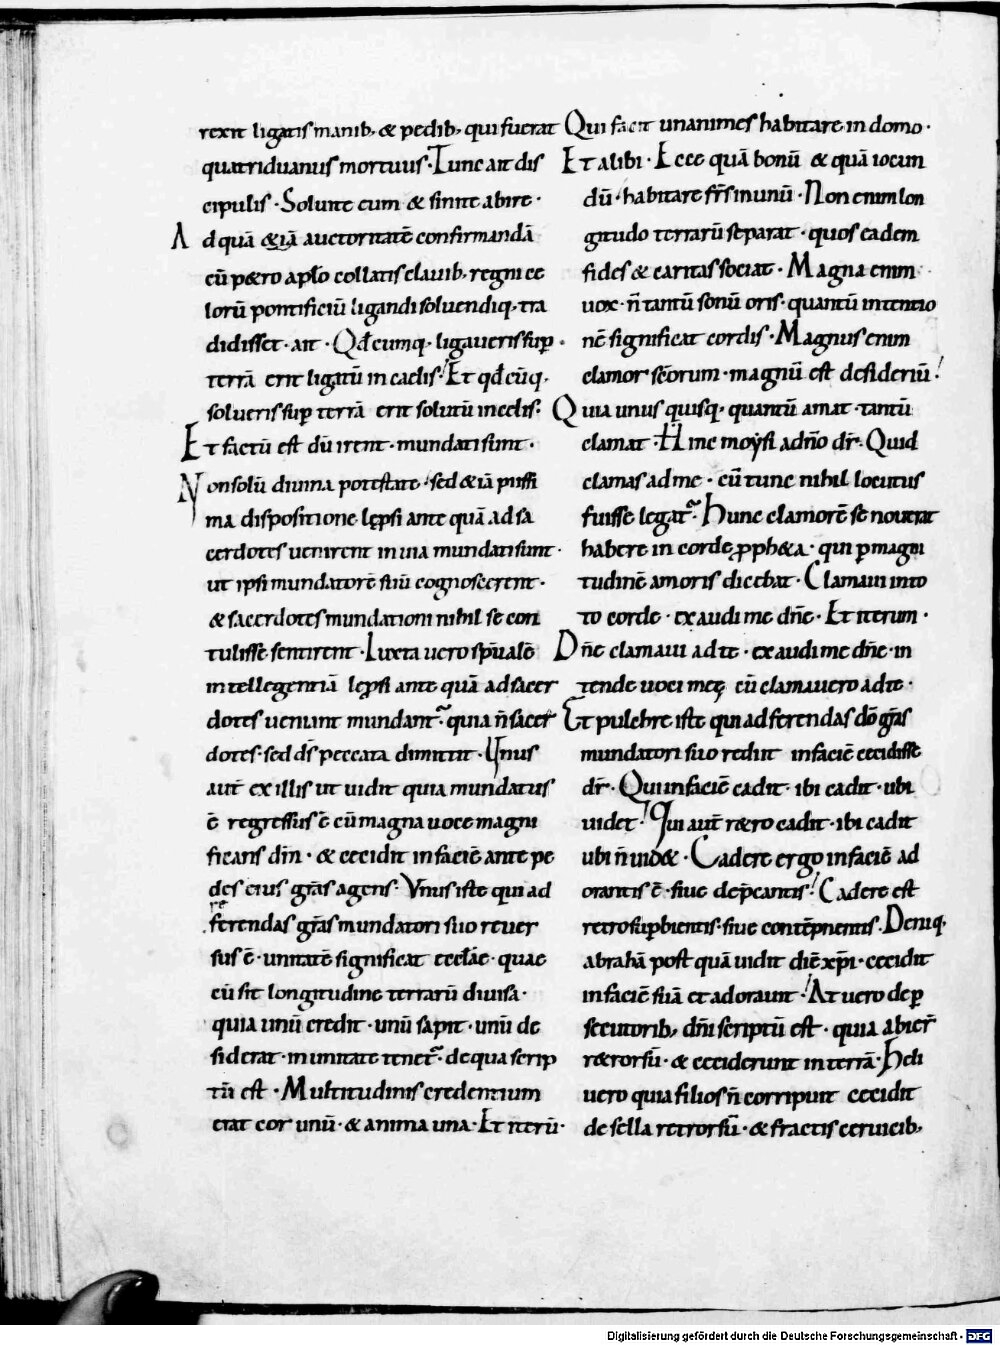 rexit ligatis manib; & pedib; qui fuerat
quatriduanus mortuus · Tunc ait dis
cipulis · Soluite eum & sinite abire ·
A d quā &iā auctoritatē confirmandā
cū p&ro aplo collatis clauib; regni ce
lorū pontificiū ligandi soluendiq; tra
didisset · ait · Qd cumq; ligaueris sup
terrā erit ligatū in caelis · Et qd cūq;
solueris sup terrā erit solutū in celis ·
Et factū est dū irent · mundati sunt ·
Non solū diuina potestate · sed &iā piissi
ma dispositione lępsi ante quā ad sa
cerdotes uenirent in uia mundati sunt ·
ut ipsi mundatorē suū cognoscerent ·
& sacerdotes mundationi nihil se con
tulisse sentirent · Iuxta uero spualē
intellegentiā lepsi ante quā ad sacer
dotes ueniunt mundant · quia ñ sacer
dotes · sed ds peccata dimittit · Unus
aut ex illis ut uidit quia mundatus
ē regressus ē cū magna uoce magni
ficans dm · & cecidit in faciē ante pe
des eius gras agens · Vnus iste qui ad
re
ferendas gras mundatori suo reuer
sus ē · unitatē significat ecclae · quae
cū sit longitudine terrarū diuisa ·
quia unū credit · unū sapit · unū de
siderat · in unitate tenet · de qua scrip
tū est · Multitudinis credentium
erat cor unū · & anima una · Et iterū ·
Qui facit unanimes habitare in domo ·
Et alibi · Ecce quā bonū & quā iocun
dū · habitare frs in unū · Non enim lon
gitudo terrarū separat · quos eadem
fides & caritas sociat · Magna enim
uox · ñ tantū sonū oris · quantū intentio
nē significat cordis · Magnus enim
clamor scorum · magnū est desideriū ·
Quia unus quisq; quantū amat · tantū
clamat · Hinc moysi a dno dr · Quid
clamas ad me · cū tunc nihil locutus
fuisse legat · Hunc clamorē se nouerat
habere in corde pph&a · qui p magni
tudinē amoris dicebat · Clamaui in to
to corde · exaudi me dne · Et iterum ·
Dne clamaui ad te · exaudi me dne · in
tende uoci meę cū clamauero ad te ·
Et pulchre iste qui ad ferendas do gras
mundatori suo rediit in faciē cecidisse
dr · Qui in faciē cadit · ibi cadit · ubi
uidet · Qui aut r&ro cadit · ibi cadit
ubi ñ uid& · Cadere ergo in faciē ad
orantis ē · siue depcantis · Cadere est
retro supbientis · siue contēpnentis · Deniq;
abrahā post quā uidit diē xpi · cecidit
in faciē suā et adorauit · At uero de p
secutorib; dni scriptū est · quia abier
r&rorsū · & ceciderunt in terrā · Heli
uero quia filios ñ corripuit cecidit
de sella retrorsū · & fractis ceruicib;
Digitalisierung gefördert durch die Deutsche Forschungsgemeinschaft - DFG